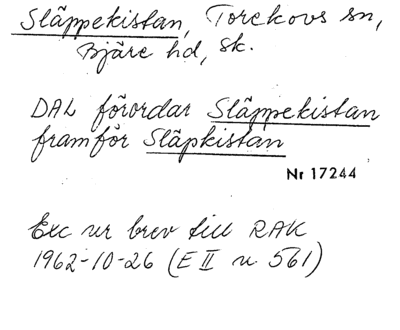 Släppekistan, Torekovs sn,
Bjäre hd, Sk.
DAL förordar Släppekistan
framför Släpkistan
Nr 17244
Exc ur brev till RAK
1962-10-26 (E II u 561)